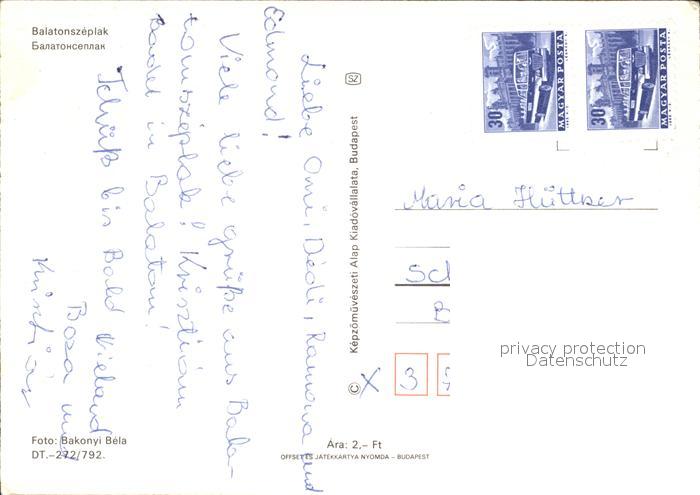 Balatonszéplak
Балатонсеплак
Liebe Omi, Dédi, Ramona und
Edmond!
Viele liebe grüße aus Bala-
tonszéplak! Krisztián
badet in Balaton!
Tchüß bis Bald Wieland
Foto: Bakonyi Béla
DT.–272/792.
SZ
© Képzőművészeti Alap Kiadóvállalata, Budapest
Ára: 2,– Ft
OFFSET ÉS JÁTÉKKÁRTYA NYOMDA – BUDAPEST
30
MAGYAR POSTA
30
MAGYAR POSTA
Maria Hüttner
Sch
X 3
privacy protection
Datenschutz